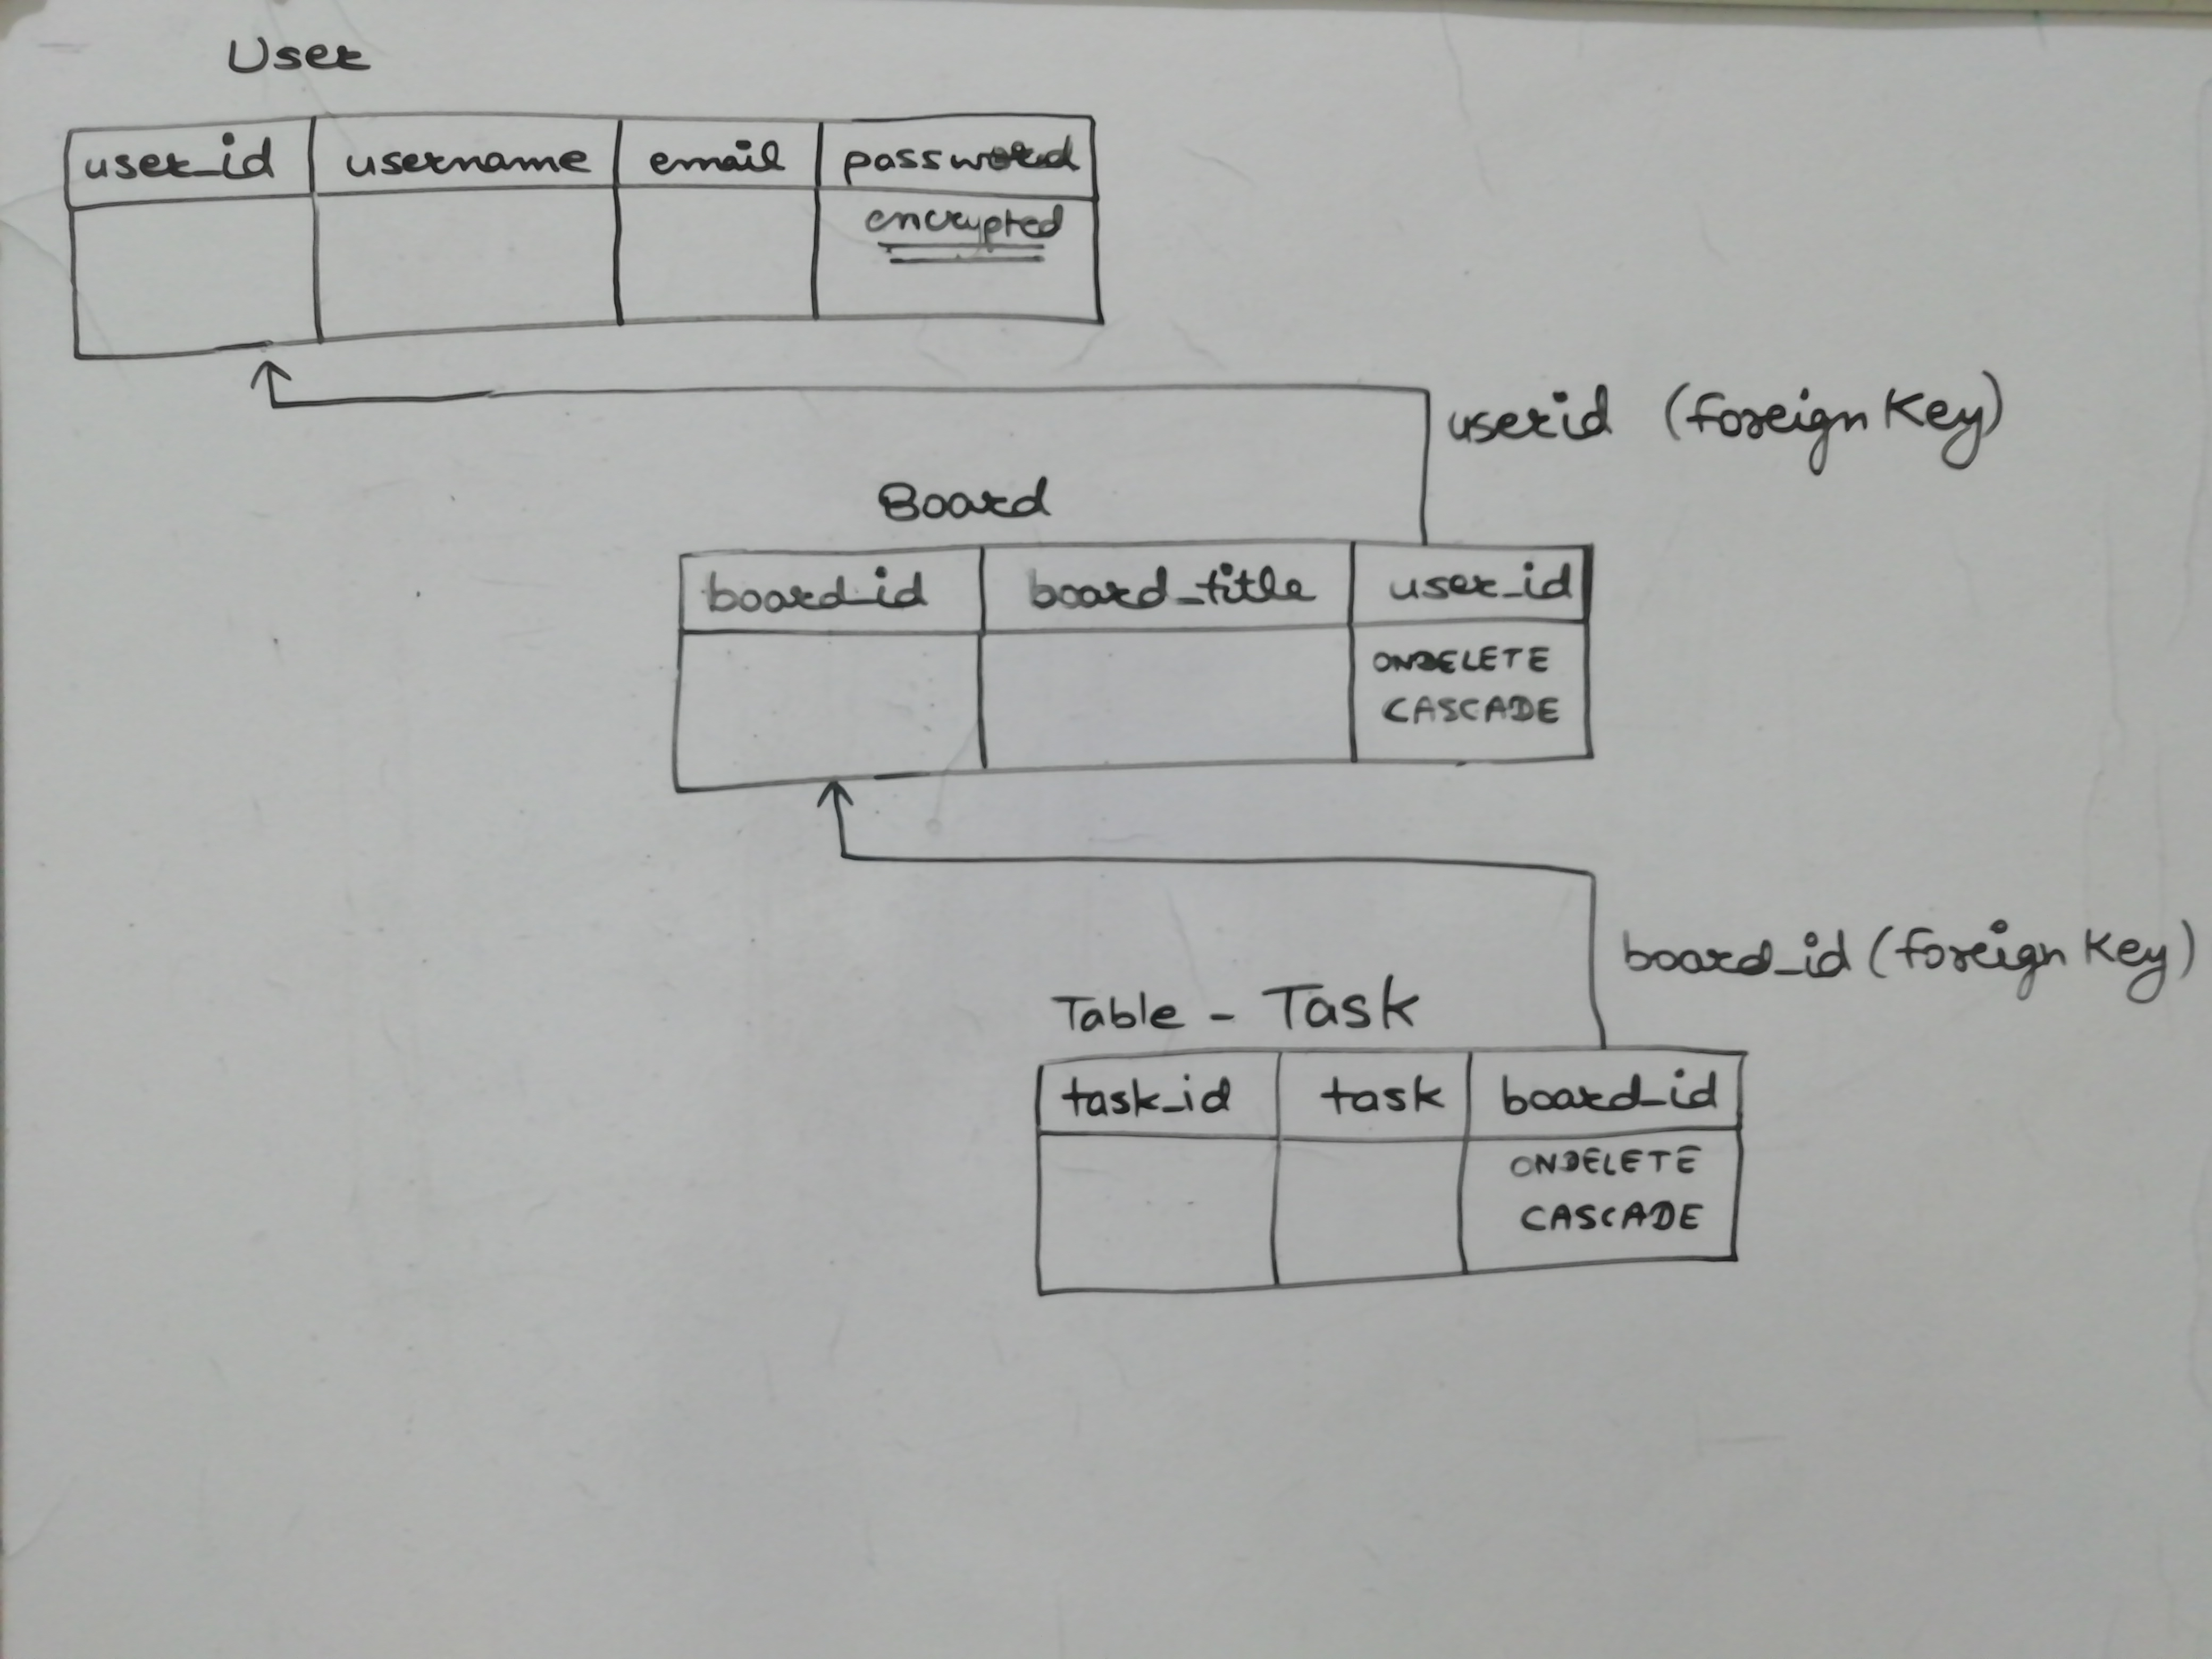 User
user_id username email password
encrypted
userid (foreign Key)
Board
board_id board_title user_id
ONDELETE
CASCADE
board_id (foreign Key)
Table - Task
task_id task board_id
ONDELETE
CASCADE